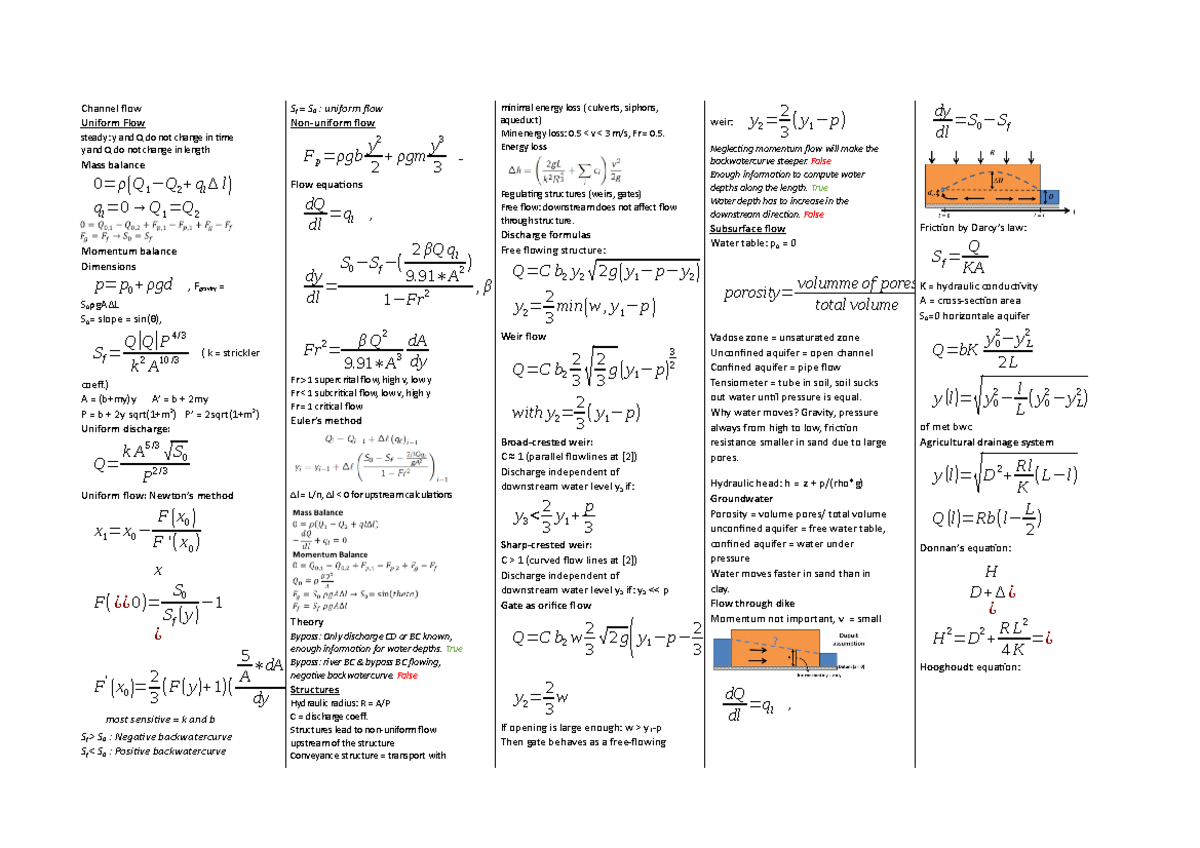 Channel flow
Uniform Flow
steady: y and Q do not change in time
y and Q do not change in length
Mass balance
0=ρ(Q₁−Q₂+qₗΔl)
qₗ=0→Q₁=Q₂
0 = Q₀,₁ − Q₀,₂ + Fₚ,₁ − Fₚ,₂ + F_g − F_f
F_g = F_f → S₀ = S_f
Momentum balance
Dimensions
p=p₀+ρgd , F_gravity =
S₀ρgAΔL
S₀= slope = sin(θ),
S_f=Q|Q|P^4/3 / k²A^10/3 ( k = strickler
coeff.)
A = (b+my)y A’ = b + 2my
P = b + 2y sqrt(1+m²) P’ = 2sqrt(1+m²)
Uniform discharge:
Q=kA^5/3 √S₀ / P^2/3
Uniform flow: Newton’s method
x₁=x₀−F(x₀)/F'(x₀)
x
F(¿¿0)=S₀/S_f(y)−1
¿
F'(x₀)=2/3(F(y)+1)(5/A*dA/dy
most sensitive = k and b
S_f> S₀ : Negative backwatercurve
S_f< S₀ : Positive backwatercurve
S_f = S₀ : uniform flow
Non-uniform flow
Fₚ=ρgb y²/2+ρgm y³/3
Flow equations
dQ/dl=qₗ ,
dy/dl=S₀−S_f−(2βQqₗ/9.91∗A²)/1−Fr² , β
Fr²=βQ²/9.91∗A³ dA/dy
Fr> 1 supercrital flow, high v, low y
Fr< 1 subcritical flow, low v, high y
Fr= 1 critical flow
Euler’s method
Qᵢ = Qᵢ₋₁ + Δℓ(qₗ)ᵢ₋₁
yᵢ = yᵢ₋₁ + Δℓ(S₀ − S_f − 2βQqₗ/gA² / 1 − Fr²)ᵢ₋₁
Δl = L/n, Δl < 0 for upstream calculations
Mass Balance
0 = ρ(Q₁ − Q₂ + qlΔl)
−dQ/dl + qₗ = 0
Momentum Balance
F_g = S₀ ρgAΔl → S₀= sin(theta)
F_f = S_f ρgAΔl
Theory
Bypass: Only discharge CD or BC known,
enough information for water depths. True
Bypass: river BC & bypass BC flowing,
negative backwatercurve. False
Structures
Hydraulic radius: R = A/P
C = discharge coeff.
Structures lead to non-uniform flow
upstream of the structure
Conveyance structure = transport with
minimal energy loss ( culverts, siphons,
aqueduct)
Min energy loss: 0.5 < v < 3 m/s, Fr= 0.5.
Energy loss
Regulating structures (weirs, gates)
Free flow: downstream does not affect flow
through structure.
Discharge formulas
Free flowing structure:
Q=C b₂ y₂ √2g(y₁−p−y₂)
y₂=2/3 min(w, y₁−p)
Weir flow
Q=C b₂ 2/3 √2/3 g(y₁−p)^3/2
with y₂=2/3(y₁−p)
Broad-crested weir:
C ≈ 1 (parallel flowlines at [2])
Discharge independent of
downstream water level y₃ if:
y₃<2/3 y₁+p/3
Sharp-crested weir:
C > 1 (curved flow lines at [2])
Discharge independent of
downstream water level y₃ if: y₃ << p
Gate as orifice flow
Q=C b₂ w 2/3 √2g(y₁−p−2/3
y₂=2/3 w
If opening is large enough: w > y₁-p
Then gate behaves as a free-flowing
weir: y₂=2/3(y₁−p)
Neglecting momentum flow will make the
backwatercurve steeper. False
Enough information to compute water
depths along the length. True
Water depth has to increase in the
downstream direction. False
Subsurface flow
Water table: p₀ = 0
porosity=volumme of pores/total volume
Vadose zone = unsaturated zone
Unconfined aquifer = open channel
Confined aquifer = pipe flow
Tensiometer = tube in soil, soil sucks
out water until pressure is equal.
Why water moves? Gravity, pressure
always from high to low, friction
resistance smaller in sand due to large
pores.
Hydraulic head: h = z + p/(rho*g)
Groundwater
Porosity = volume pores/ total volume
unconfined aquifer = free water table,
confined aquifer = water under
pressure
Water moves faster in sand than in
clay.
Flow through dike
Momentum not important, v = small
?
Dupuit
assumption
dQ/dl=qₗ ,
dy/dl=S₀−S_f
R
ΔH
D
Friction by Darcy’s law:
S_f=Q/KA
K = hydraulic conductivity
A = cross-section area
S₀=0 horizontale aquifer
Q=bK y₀²−y_L²/2L
y(l)=√y₀²−l/L(y₀²−y_L²)
of met bwc
Agricultural drainage system
y(l)=√D²+Rl/K(L−l)
Q(l)=Rb(l−L/2)
Donnan’s equation:
H
D+Δ¿
¿
H²=D²+RL²/4K=¿
Hooghoudt equation: